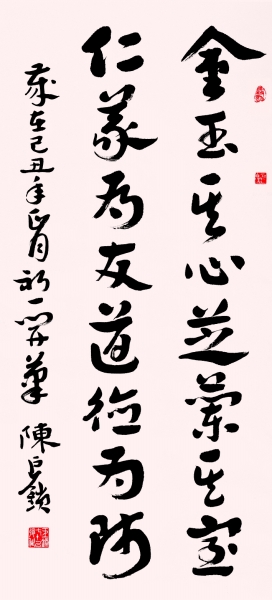 金玉其心芝蘭其室
仁義為友道德為師
歲在己丑年正月初一開筆 陳巨鎖